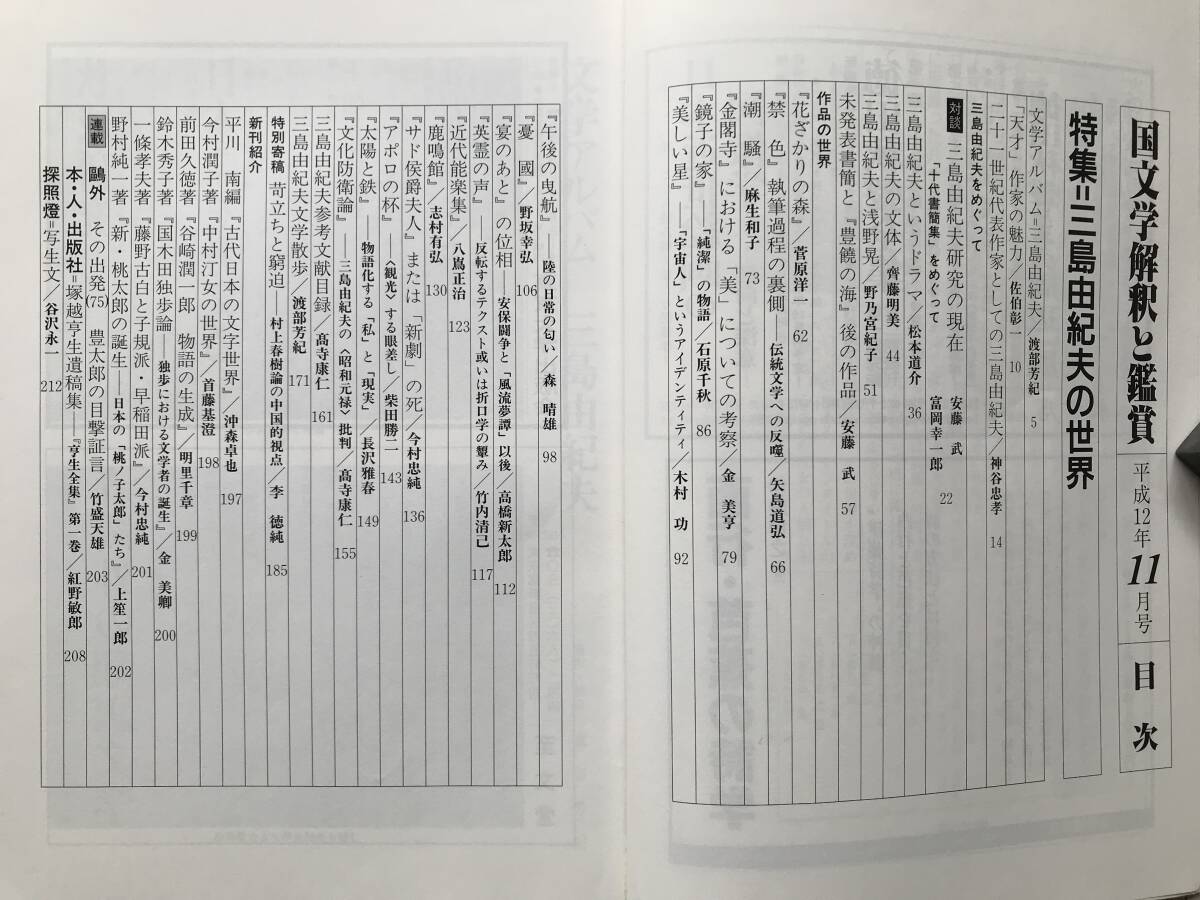 国文学解釈と鑑賞 平成12年11月号 目次
特集=三島由紀夫の世界
文学アルバム=三島由紀夫／渡部芳紀 5
「天才」作家の魅力／佐伯彰一 10
二十一世紀代表作家としての三島由紀夫／神谷忠孝 14
三島由紀夫をめぐって
対談 三島由紀夫研究の現在 安藤 武
「十代書簡集」をめぐって 富岡幸一郎 22
三島由紀夫というドラマ／松本道介 36
三島由紀夫の文体／齊藤明美 44
三島由紀夫と浅野晃／野乃宮紀子 51
未発表書簡と『豊饒の海』後の作品／安藤 武 57
作品の世界
『花ざかりの森』／菅原洋一 62
『禁 色』執筆過程の裏側 伝統文学への反噬／矢島道弘 66
『潮 騒』／麻生和子 73
『金閣寺』における「美」についての考察／金 美亨 79
『鏡子の家』――「純潔」の物語／石原千秋 86
『美しい星』――「宇宙人」というアイデンティティ／木村 功 92
『午後の曳航』――陸の日常の匂い／森 晴雄 98
『憂 國』／野坂幸弘 106
『宴のあと』の位相――安保闘争と「風流夢譚」以後／高橋新太郎 112
『英霊の声』――反転するテクスト或いは折口学の顰み／竹内清己 117
『近代能楽集』／八嶌正治 123
『鹿鳴館』／志村有弘 130
『サド侯爵夫人』または「新劇」の死／今村忠純 136
『アポロの杯』――〈観光〉する眼差し／柴田勝二 143
『太陽と鉄』――物語化する「私」と「現実」／長沢雅春 149
『文化防衛論』――三島由紀夫の〈昭和元禄〉批判／髙寺康仁 155
三島由紀夫参考文献目録／髙寺康仁 161
三島由紀夫文学散歩／渡部芳紀 171
特別寄稿 苛立ちと窮迫――村上春樹論の中国的視点／李 徳純 185
新刊紹介
平川 南編『古代日本の文字世界』／沖森卓也 197
今村潤子著『中村汀女の世界』／首藤基澄 198
前田久徳著『谷崎潤一郎 物語の生成』／明里千章 199
鈴木秀子著『国木田独歩論――独歩における文学者の誕生』／金 美卿 200
一條孝夫著『藤野古白と子規派・早稲田派』／今村忠純 201
野村純一著『新・桃太郎の誕生――日本の「桃ノ子太郎」たち』／上笙一郎 202
連載 鷗外 その出発(75) 豊太郎の目撃証言／竹盛天雄 203
本・人・出版社=塚越亨生遺稿集――『亨生全集』第一巻／紅野敏郎 208
探照燈=写生文／谷沢永一 212